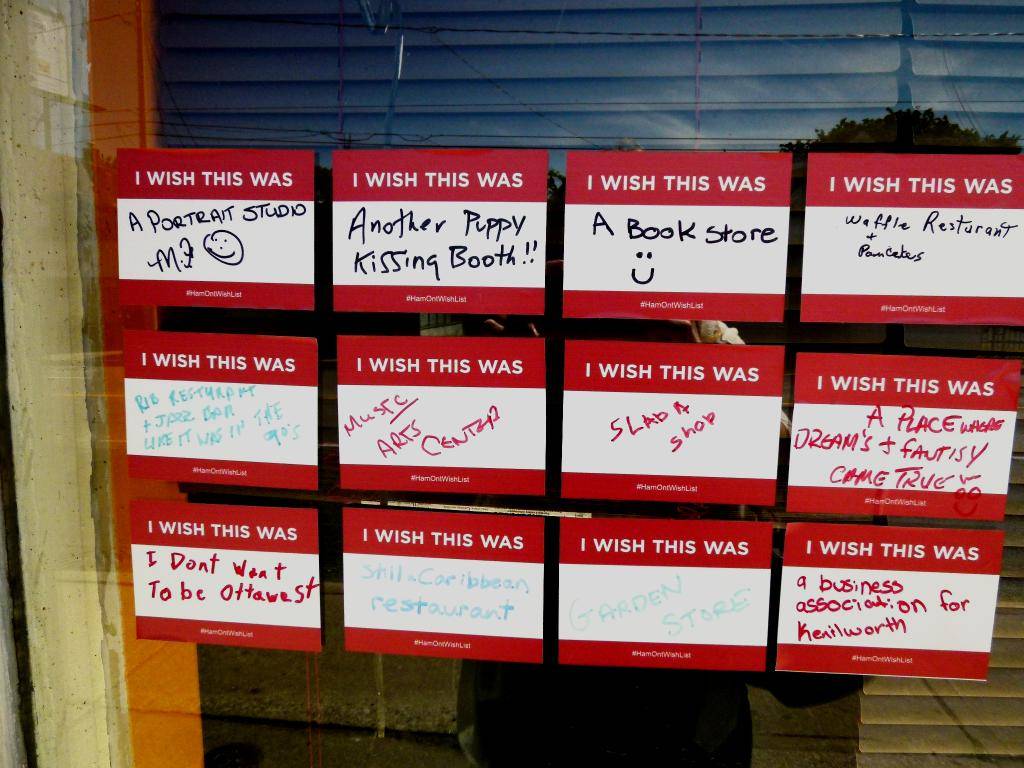 I WISH THIS WAS
A PORTRAIT STUDIO
#HamOntWishList
I WISH THIS WAS
Another Puppy
Kissing Booth!!
#HamOntWishList
I WISH THIS WAS
A Book store
#HamOntWishList
I WISH THIS WAS
Waffle Resturant
+
Pancakes
#HamOntWishList
I WISH THIS WAS
RIB RESTURANT
+ JAZZ BAR
LIKE IT WAS IN THE
90's
#HamOntWishList
I WISH THIS WAS
MUSIC
ARTS
CENTER
#HamOntWishList
I WISH THIS WAS
SLADA
SHOP
#HamOntWishList
I WISH THIS WAS
A PLACE WHERE
DREAM'S + FANTISY
CAME TRUE
#HamOntWishList
I WISH THIS WAS
I Dont Want
To be Ottawest
#HamOntWishList
I WISH THIS WAS
Still a Caribbean
restaurant
#HamOntWishList
I WISH THIS WAS
GARDEN
STORE
#HamOntWishList
I WISH THIS WAS
a business
association for
Kenilworth
#HamOntWishList